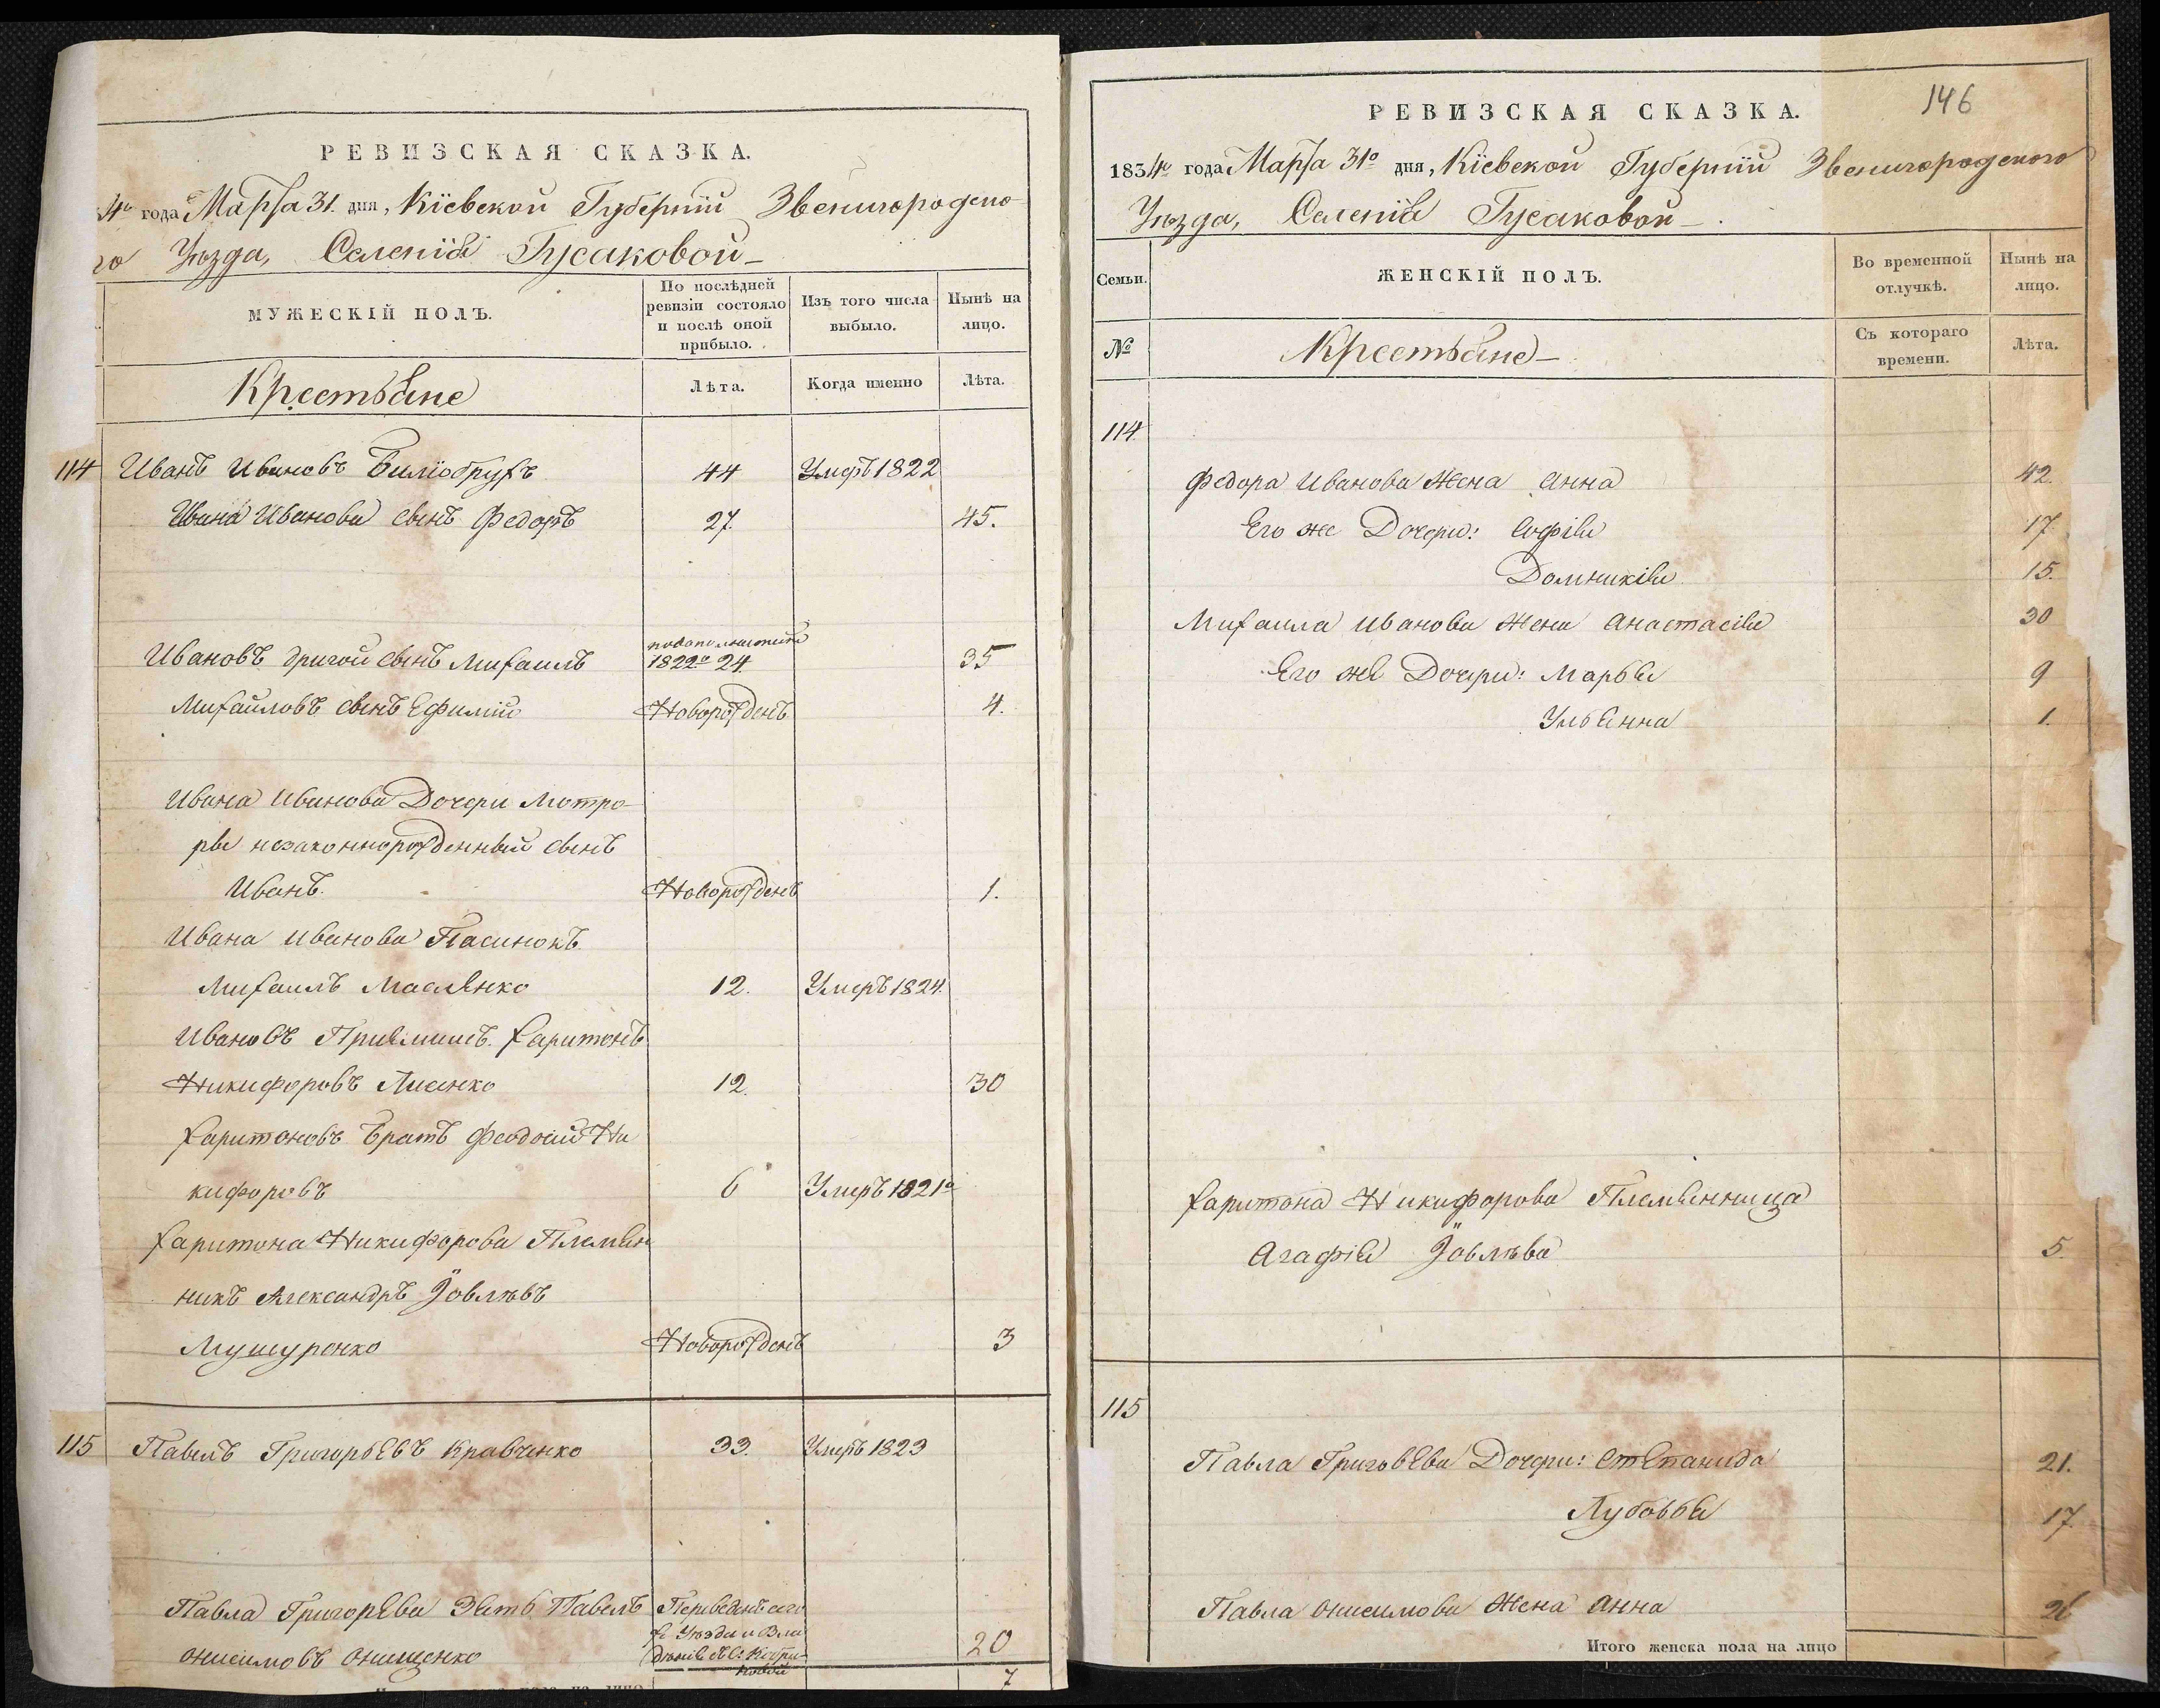 РЕВИЗСКАЯ СКАЗКА.
4го года Марта 31. дня, Кіевской Губерніи Звенигородско-
го Уѣзда, Селенія Гусаковой-
МУЖЕСКІЙ ПОЛЪ.
По послѣдней ревизіи состояло и послѣ оной прибыло.
Изъ того числа выбыло.
Нынѣ на лицо.
Крестьяне
Лѣта.
Когда именно
Лѣта.
114 Иванъ Ивановъ 44 Умеръ 1822
Ивана Иванова сынъ Федоръ 27. 45.
1822го 24 35
Ивановъ другой сынъ Михаилъ
Михайловъ сынъ Ефимій Новорожденъ 4.
Ивана Иванова Дочери Мотро-
ры незаконнорожденный сынъ
Иванъ. Новорожденъ 1.
Ивана Иванова Пасинокъ
Михаилъ Масленко 12. Умеръ 1824.
Ивановъ Пріемышъ Харитонъ
Никифоровъ Лисенко 12. 30
Харитоновъ братъ Феодосій Ни
кифоровъ 6 Умеръ 1821го
Харитона Никифорова Племян
никъ Александръ Іовлевъ
Мушуренко Новорожденъ 3
115 Павелъ Григорьевъ Кравченко 33. Умеръ 1823
Павла Григорьева Зять Павелъ Переведенъ сего
Уѣзда и Вла
Онисимовъ Онищенко 20
7
РЕВИЗСКАЯ СКАЗКА.
146
1834го года Марта 31го дня, Кіевской Губерніи Звенигородского
Уѣзда, Селенія Гусаковой-.
Семьи.
ЖЕНСКІЙ ПОЛЪ.
Во временной отлучкѣ.
Нынѣ на лицо.
№
Крестьяне-
Съ котораго времени.
Лѣта.
114.
Федора Иванова Жена Анна 42.
Его же Дочери: Софія 17
Домникія 15.
Михаила Иванова Жена Анастасія 30
Его же Дочери: Марья 9
Ульянна 1.
Харитона Никифорова Племянница
Агафія Іовлева 5.
115
Павла Григовева Дочери: Степанида 21.
Лубовья 17.
Павла Онисимова Жена Анна
Итого женска пола на лицо